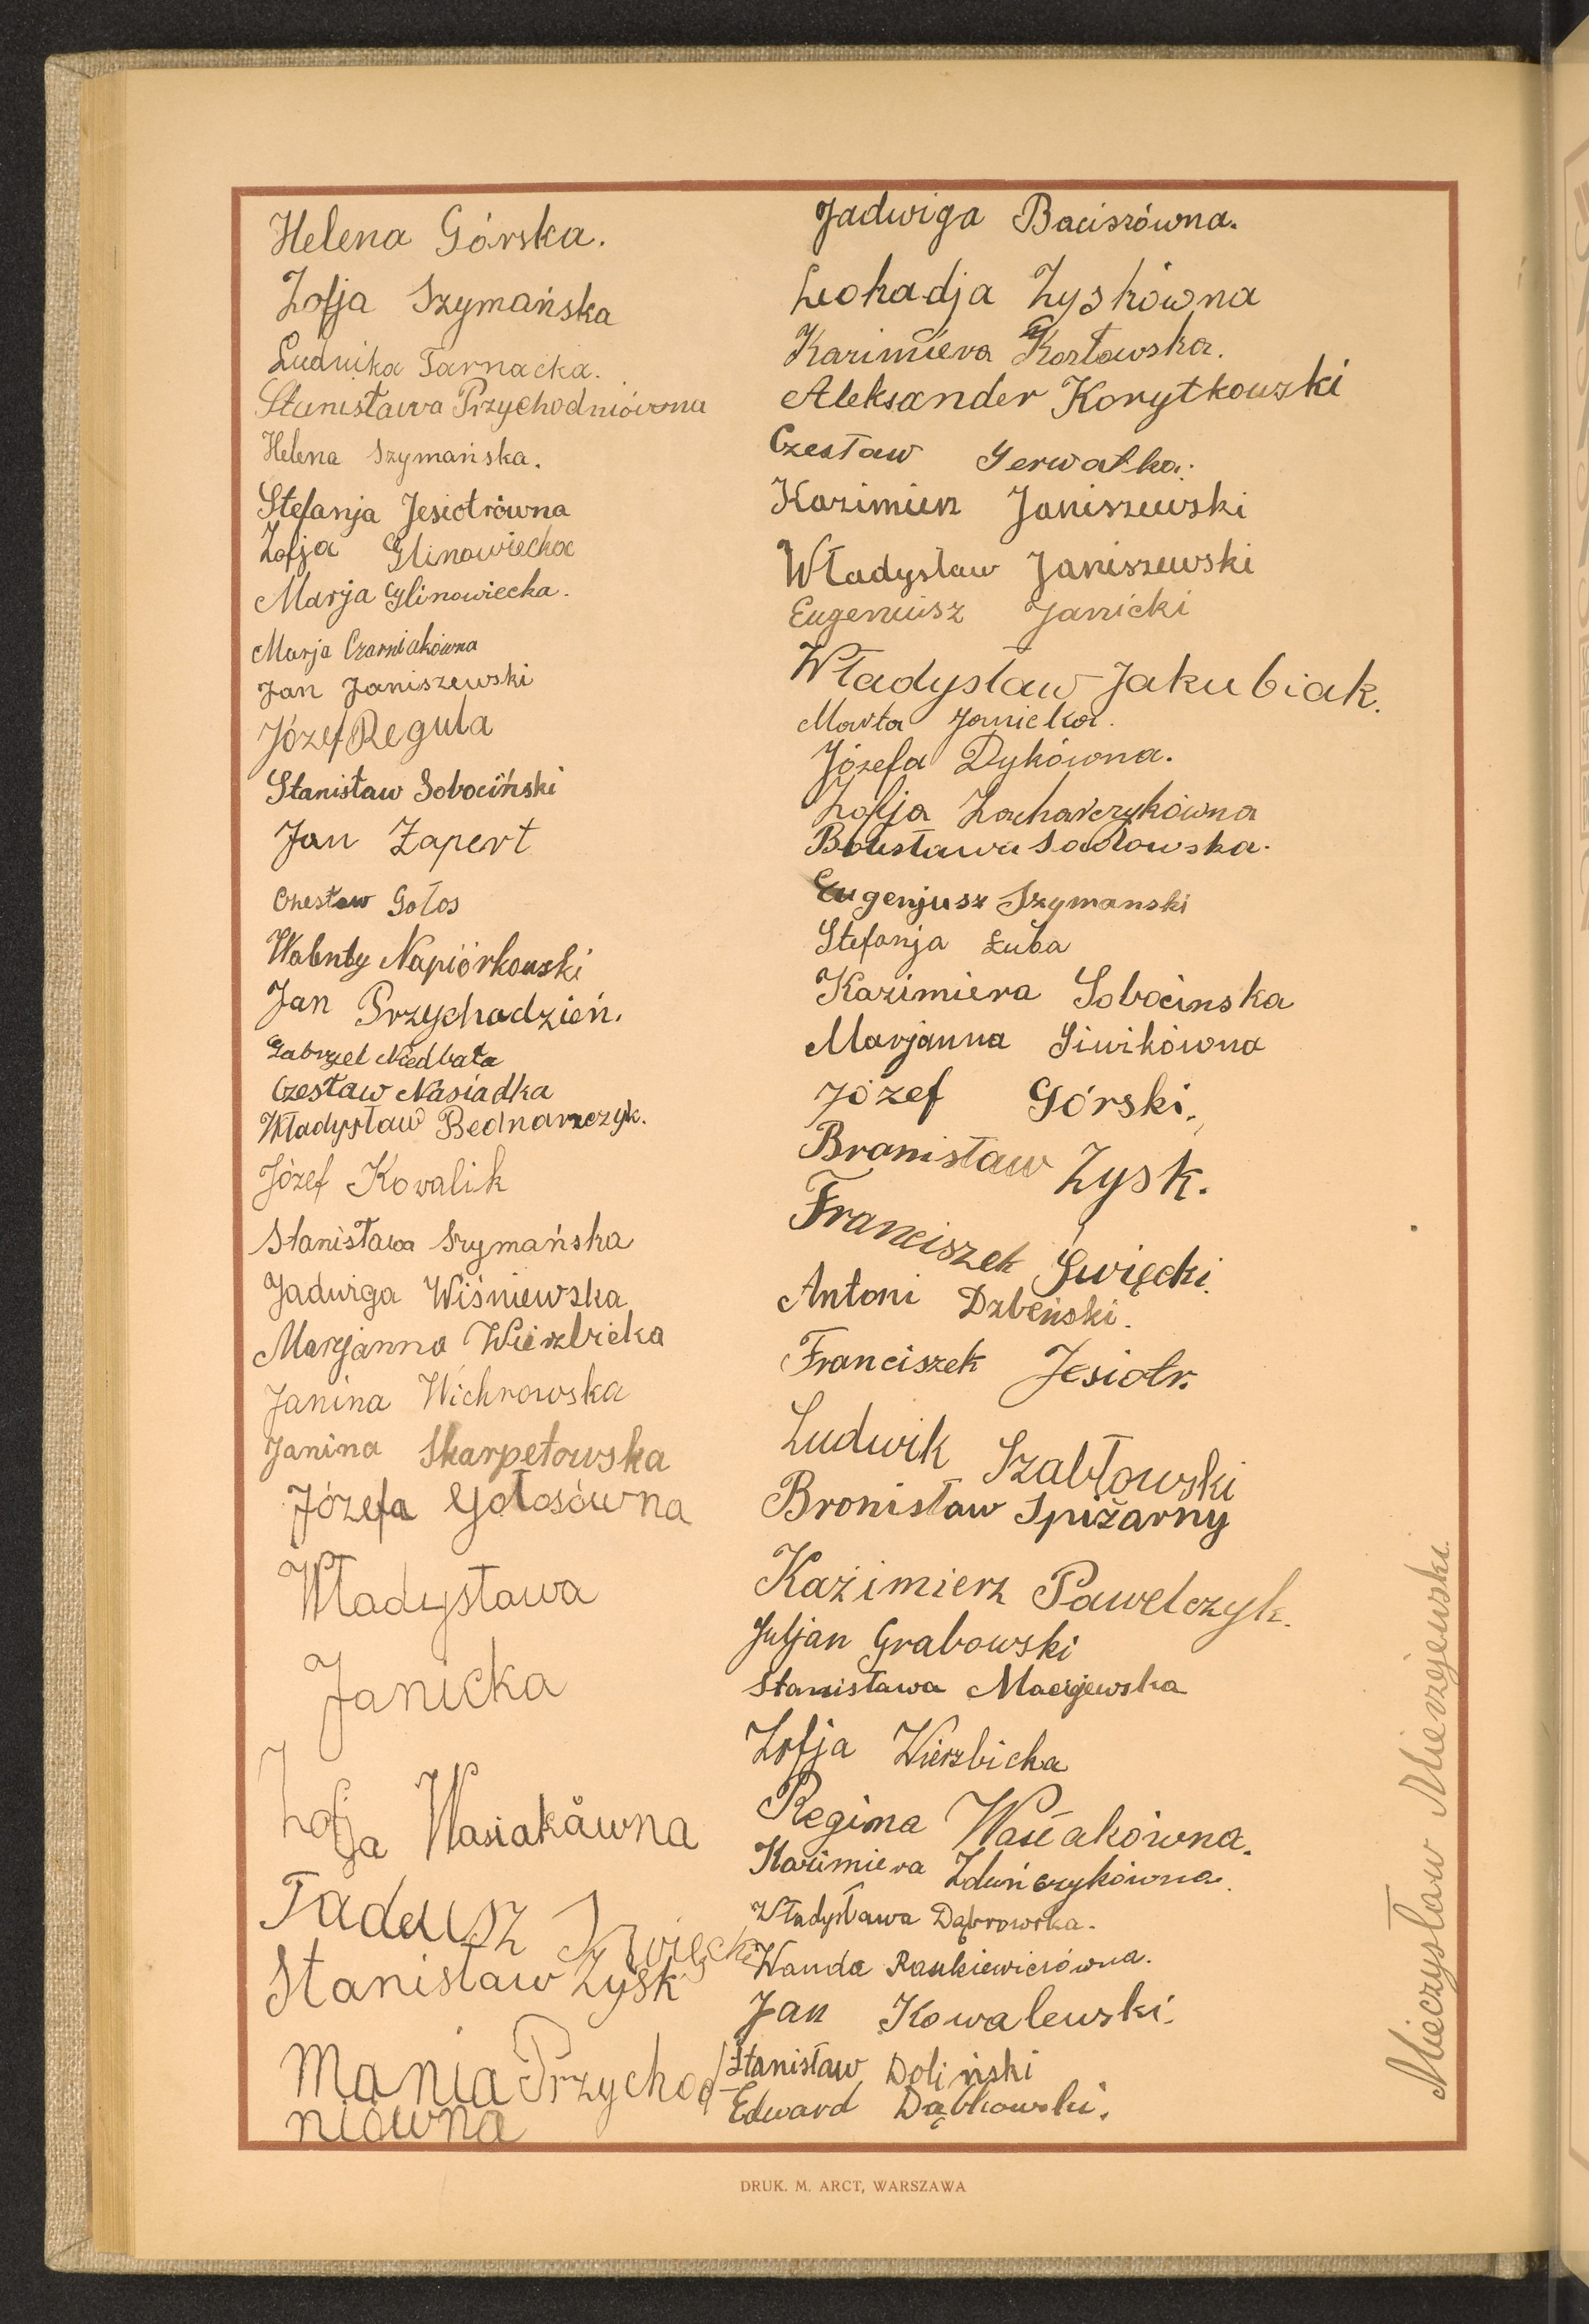 Helena Górska.
Zofja Szymańska
Ludwika Tarnacka.
Stanisława Przychodniówna
Helena Szymańska.
Stefanja Jesiotrówna
Zofja Glinowiecka
Marja Glinowiecka.
Marja Czarniakówna
Jan Janiszewski
Józef Reguła
Stanisław Sobociński
Jan Żapert
Czesław Gołos
Walenty Napiórkowski
Jan Przychodzień.
Gabrjel Niedbała
Czesław Nasiadka
Władysław Bednarczyk.
Józef Kowalik
Stanisława Szymańska
Jadwiga Wiśniewska
Marjanna Wierzbicka
Janina Wichrowska
Janina Skarpetowska
Józefa Gołosówna
Władysława
Janicka
Zofja Wasiakówna
Tadeusz Święcki
Stanisław Zysk
Mania Przychod
niówna
Jadwiga Baciszówna.
Leokadja Zyskówna
Kazimiera Kozłowska.
Aleksander Korytkowski
Czesław Serwatka.
Kazimierz Janiszewski
Władysław Janiszewski
Eugeniusz Janicki
Władysław Jakubiak.
Marta Janicka.
Józefa Dykówna.
Zofja Zacharczykówna
Bolesława Sadłowska.
Eugenjusz Szymanski
Stefanja Łuba
Kazimiera Sobocinska
Marjanna Siwikówna
Józef Górski.
Bronisław Zysk.
Franciszek Święcki.
Antoni Dzbeński.
Franciszek Jesiotr.
Ludwik Szabłowski
Bronisław Spiżarny
Kazimierz Pawelczyk.
Juljan Grabowski
Stanisława Maciejewska
Zofja Wierzbicka
Regina Wasiakówna.
Kazimiera Zduńczykówna.
Władysława Dąbrowska.
Wanda Rankiewiczówna.
Jan Kowalewski.
Stanisław Doliński
Edward Dąbkowski.
Mieczysław Mierzejewski.
DRUK. M. ARCT, WARSZAWA